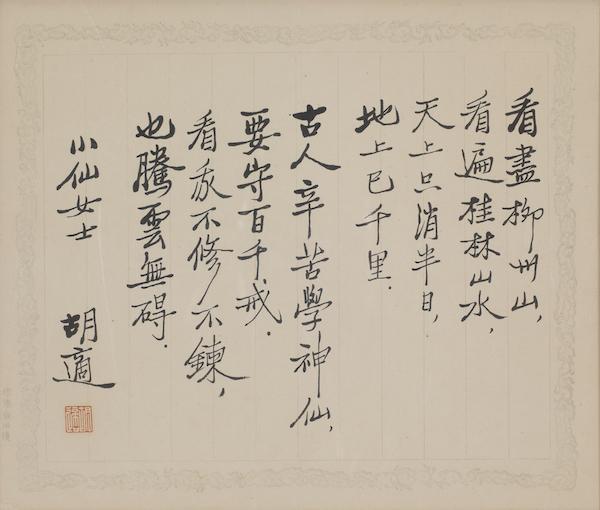 看盡柳州山，
看遍桂林山水，
天上只消半日，
地上已千里．
古人辛苦學神仙，
要守百千戒．
看我不修不鍊，
也騰雲無碍．
小仙女士　胡適